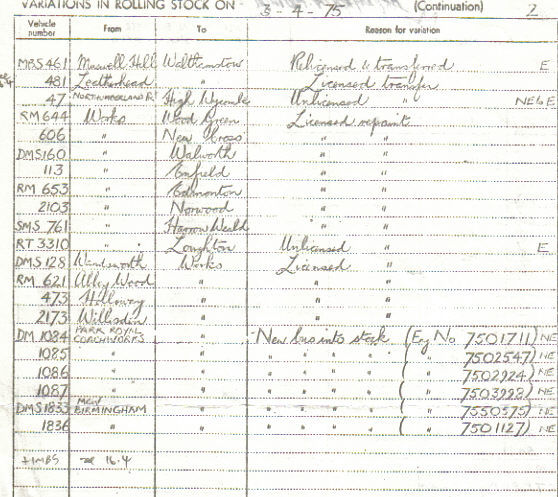 VARIATIONS IN ROLLING STOCK ON - 3 - 4 - 75 (Continuation) 2
Vehicle number From To Reason for variation
MBS 461 Muswell Hill Walthamstow Relicensed & transferred E
481 Leatherhead " Licensed transfer
47 NORTHUMBERLAND P. High Wycombe Unlicensed " NE6E
RM 644 Works Wood Green Licensed repaint
606 " New Cross " "
DMS 160 " Walworth " "
113 " Enfield " "
RM 653 " Edmonton " "
2103 " Norwood " "
SMS 761 " Harrow Weald " "
RT 3310 " Loughton Unlicensed " E
DMS 128 Wandsworth Works Licensed "
RM 621 Abbey Wood " " "
473 Holloway " " "
2173 Willesden " " "
DM 1084 PARK ROYAL COACHWORKS " New bus into stock (Eng No 7501711) NE
1085 " " " " " " ( " 7502547) NE
1086 " " " " " " ( " 7502924) NE
1087 " " " " " " ( " 7503998) NE
DMS 1833 MCW BIRMINGHAM " " " " " ( " 7550575) NE
1836 " " " " " " ( " 7501127) NE
16.4